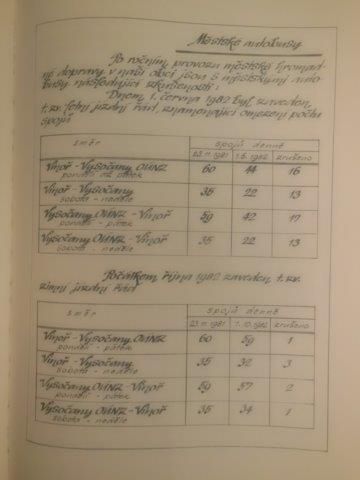 Městské autobusy
Po ročním provozu městské hromad-
né dopravy v naší obci jsou s městskými auto-
busy následující zkušenosti:
Dnem 1. června 1982 byl zaveden
t. zv. letní jízdní řád, znamenající omezení počtu
spojů
směr spojů denně
23.11.1981 1.6.1982 zrušeno
Vinoř - Vysočany OÚNZ 60 44 16
pondělí až pátek
Vinoř - Vysočany 35 22 13
sobota - neděle
Vysočany OÚNZ - Vinoř 59 42 17
pondělí - pátek
Vysočany OÚNZ - Vinoř 35 22 13
sobota - neděle
Počátkem října 1982 zaveden t. zv.
zimní jízdní řád
směr spojů denně
23.11.1981 1.10.1982 zrušeno
Vinoř - Vysočany OÚNZ 60 59 1
pondělí - pátek
Vinoř - Vysočany 35 32 3
sobota - neděle
Vysočany OÚNZ - Vinoř 59 57 2
pondělí - pátek
Vysočany OÚNZ - Vinoř 35 34 1
sobota - neděle